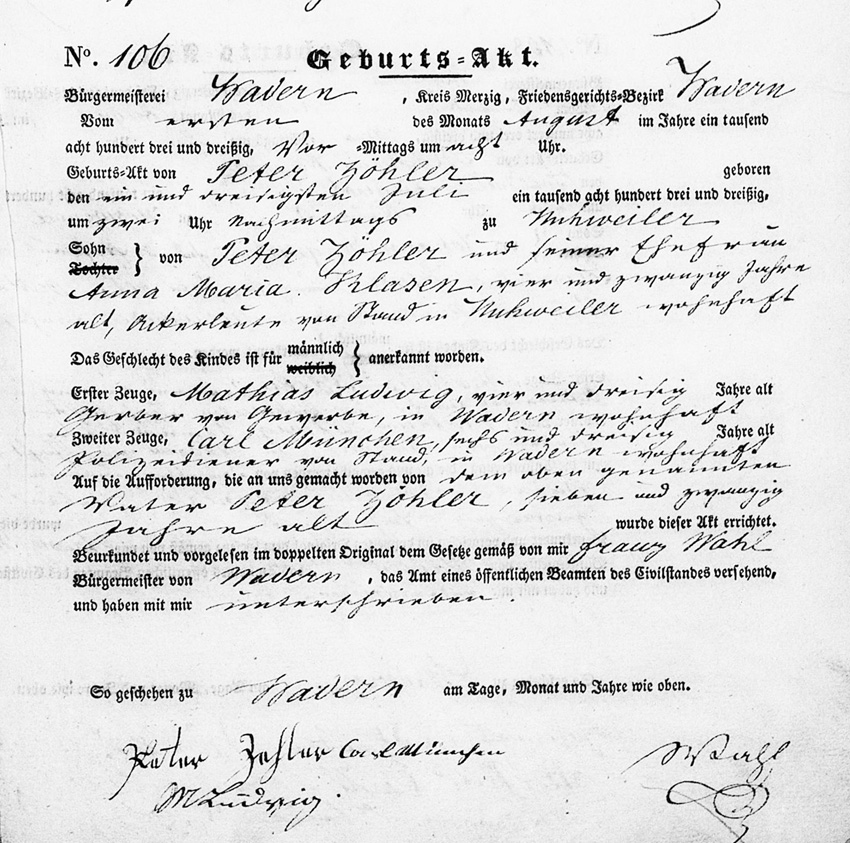 No. 106 Geburts-Akt.
Bürgermeisterei Wadern, Kreis Merzig, Friedensgerichts-Bezirk Wadern
Vom ersten des Monats August im Jahre ein tausend
acht hundert drei und dreißig, Vor-Mittags um acht Uhr.
Geburts-Akt von Peter Zöhler geboren
den ein und dreisigsten Juli ein tausend acht hundert drei und dreißig,
um zwei Uhr Nachmittags zu Nuhweiler
Sohn
Tochter } von Peter Zöhler und seiner Ehefrau
Anna Maria Klasen, vier und zwanzig Jahre
alt, Ackerleute von Stand in Nuhweiler wohnhaft
Das Geschlecht des Kindes ist für männlich
weiblich } anerkannt worden.
Erster Zeuge, Mathias Ludwig, vier und dreisig Jahre alt
Gerber von Gewerbe, in Wadern wohnhaft
Zweiter Zeuge, Carl München, sechs und dreisig Jahre alt
Polizeidiener von Stand, in Wadern wohnhaft
Auf die Aufforderung, die an uns gemacht worden von dem oben genannten
Vater Peter Zöhler, sieben und zwanzig
Jahre alt wurde dieser Akt errichtet.
Beurkundet und vorgelesen im doppelten Original dem Gesetze gemäß von mir Franz Wahl
Bürgermeister von Wadern, das Amt eines öffentlichen Beamten des Civilstandes versehend,
und haben mit mir unterschrieben.
So geschehen zu Wadern am Tage, Monat und Jahre wie oben.
Peter Zehler Carl München Wahl
M Ludwig